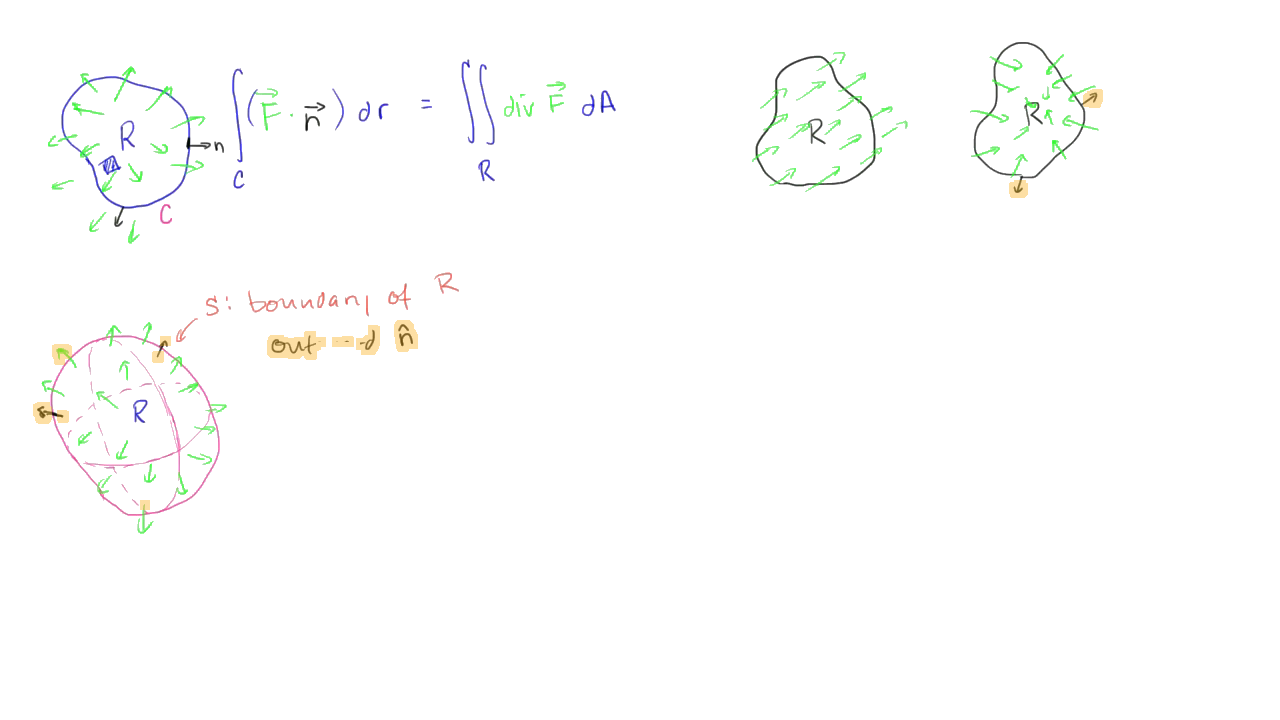 R
n
C
∫_C (F⃗ · n⃗) dr = ∬_R div F⃗ dA
R
R
S: boundary of R
out n̂
R